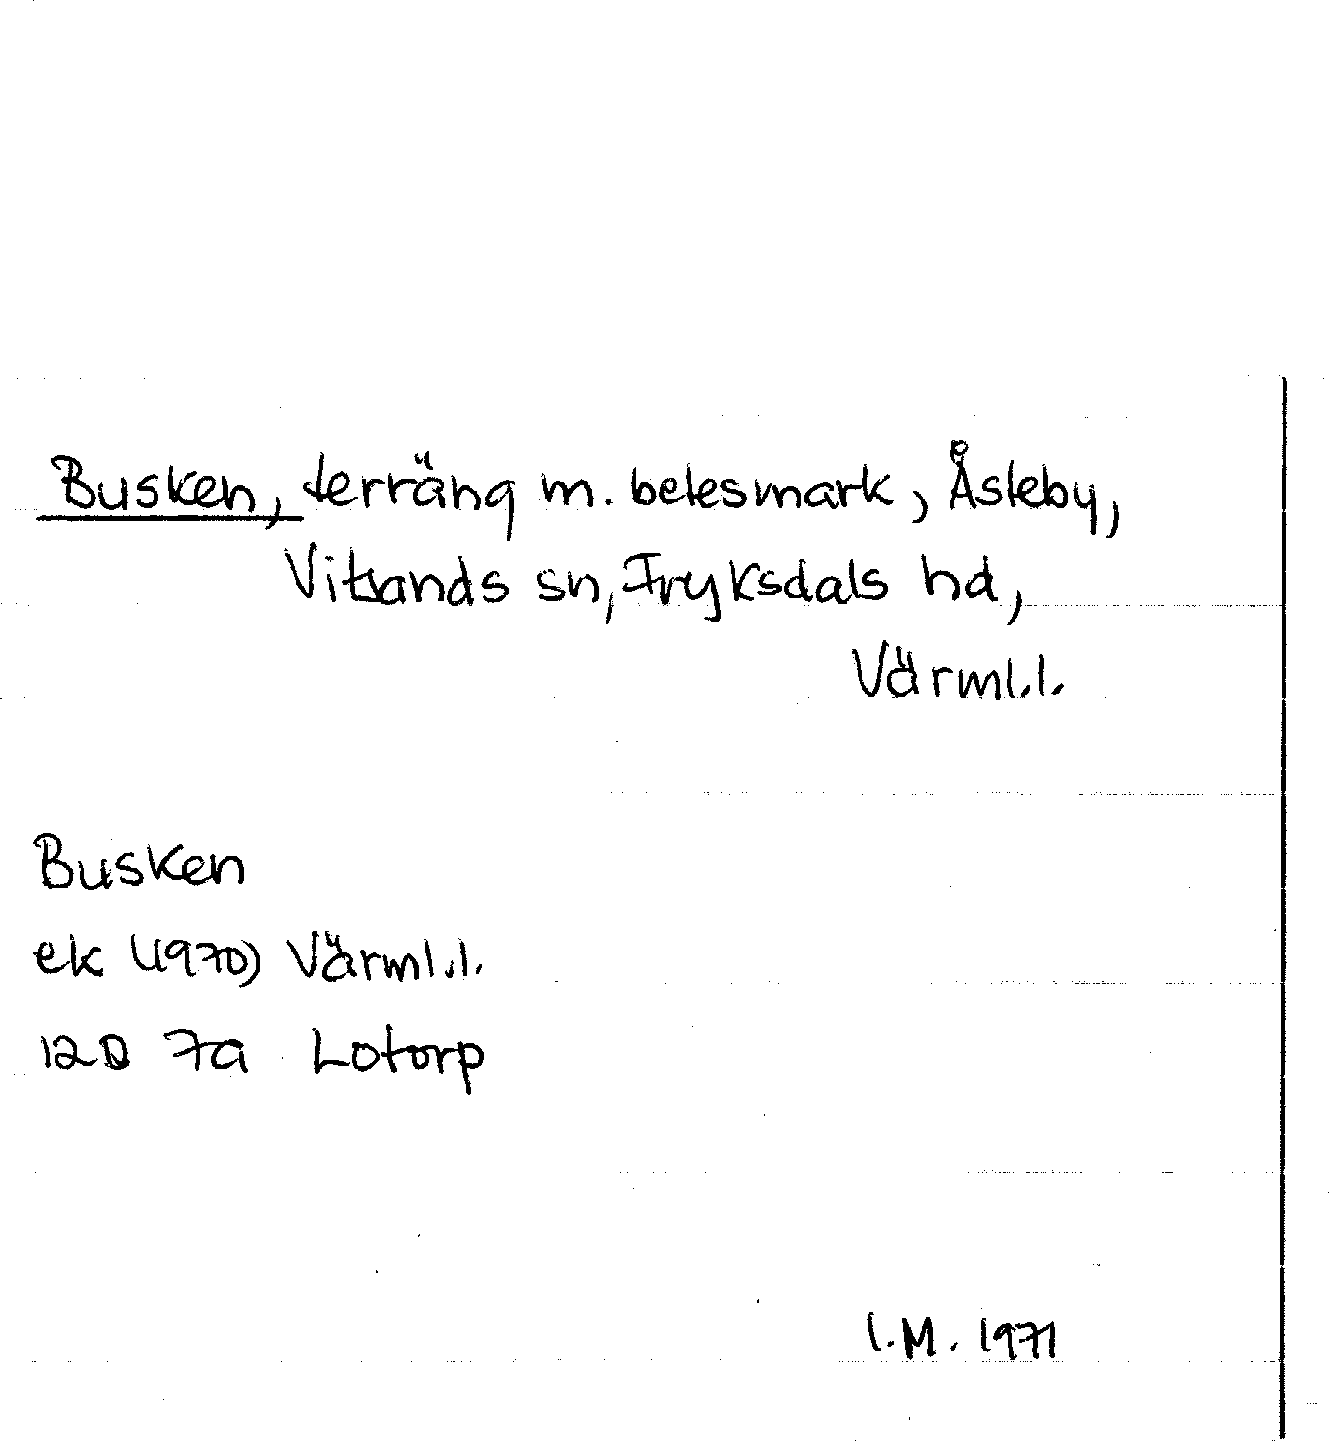 Busken, terräng m. betesmark, Åsteby,
Vitsands sn, Fryksdals hd,
Värml.l.
Busken
ek (1970) Värml.l.
12D 7a Lotorp
I.M. 1971